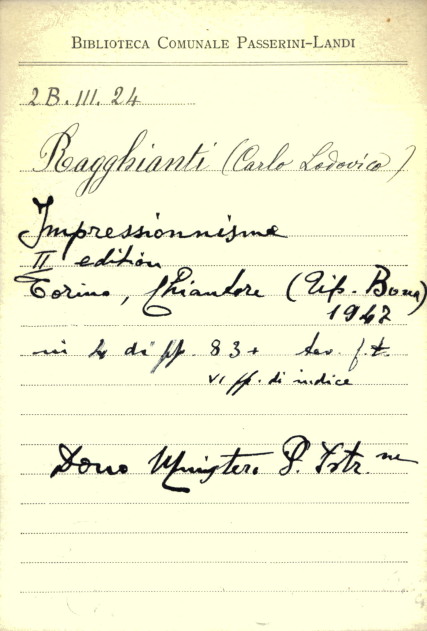 BIBLIOTECA COMUNALE PASSERINI-LANDI
2B. III. 24
Ragghianti (Carlo Lodovico)
Impressionnisme
II edition
Torino, Chiantore (Tip. Bona)
1947
in 4 di pp. 83 + tav. f.t.
VI pp. di indice
Dono Ministero P. Istr.ne